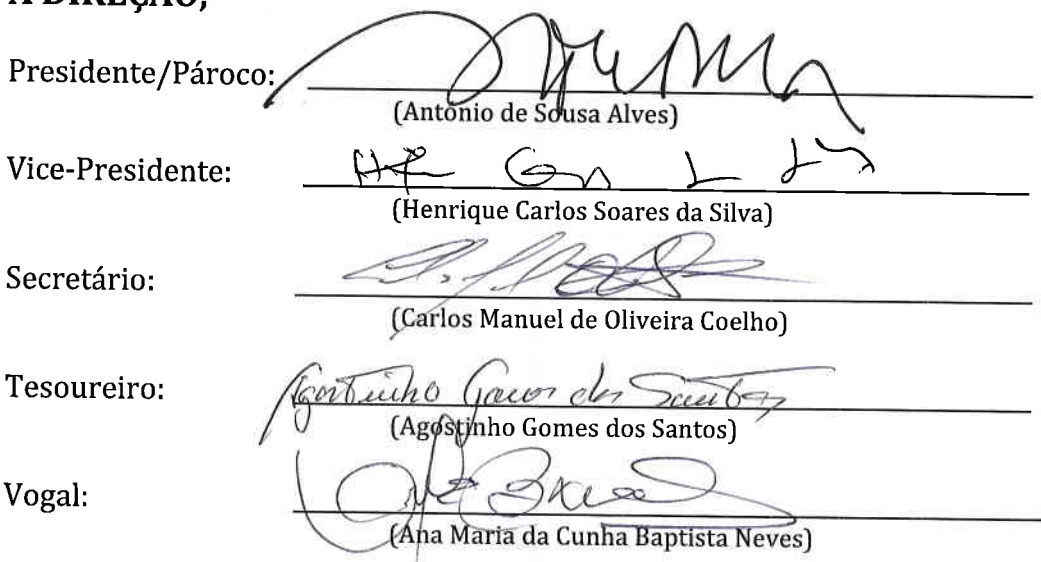 A DIREÇÃO,
Presidente/Pároco:
(António de Sousa Alves)
Vice-Presidente:
(Henrique Carlos Soares da Silva)
Secretário:
(Carlos Manuel de Oliveira Coelho)
Tesoureiro: Agostinho Gomes dos Santos
(Agostinho Gomes dos Santos)
Vogal:
(Ana Maria da Cunha Baptista Neves)